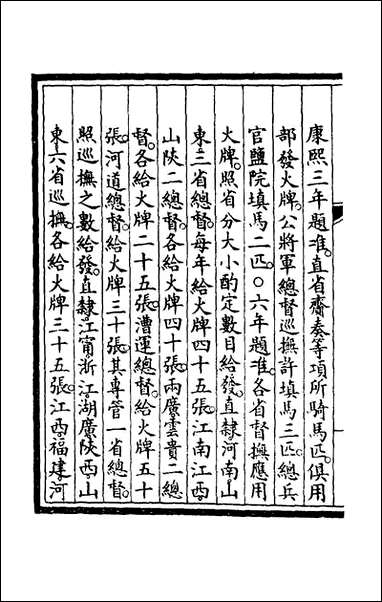 康熙三年題准。直省齎奏等項所騎馬匹。俱用
部發火牌。公將軍總督巡撫許填馬三匹。總兵
官鹽院填馬二匹。○六年題准。各省督撫應用
火牌。照省分大小酌定數目給發。直隸河南山
東三省總督。每年給火牌四十五張。江南江西
山陝二總督。各給火牌四十張。兩廣雲貴二總
督。各給火牌二十五張。漕運總督。給火牌五十
張。河道總督。給火牌三十張。其專管一省總督。
照巡撫之數給發。直隸江甯浙江湖廣陝西山
東六省巡撫。各給火牌三十五張。江西福建河